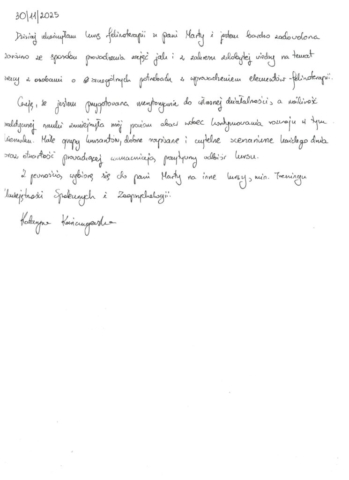 30/11/2023
Dzisiaj skończyłam kurs felinoterapii u pani Marty i jestem bardzo zadowolona
zarówno ze sposobu prowadzenia zajęć jak i z zakresu zdobytej wiedzy na temat
pracy z osobami o szczególnych potrzebach z wprowadzeniem elementów felinoterapii.
Czuję, że jestem przygotowana merytorycznie do własnej działalności, a możliwość
praktycznej nauki zmniejszyła mój poziom obaw wobec kontynuowania rozwoju w tym
kierunku. Małe grupy kursantów, dobrze napisane i czytelne scenariusze każdego dnia
oraz otwartość prowadzącej wzmacniają pozytywny odbiór kursu.
Z pewnością wybiorę się do pani Marty na inne kursy, min. Treningu
Umiejętności Społecznych i Zoopsychologii.
Katarzyna